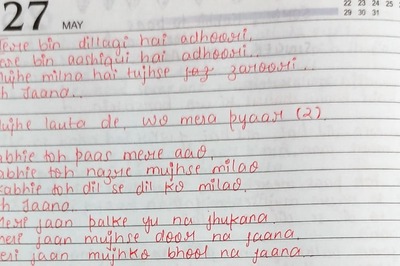 27 MAY
22 23 24 25
29 30 31
Tere bin dillagi hai adhoori.
ere bin aashiqui hai adhoori...
Mujhe milna hai tujhse faz zaroori...
h Jaana..
ujhe lauta de. Wo mera pyaar (2).
abhie toh paas mere aao.
abhie toh nazre mujhse milao
Kabhie toh dil se dil ko milao.
h Jaana..
Meri jaan palke yu na jhukana
meri jaan mujhse door na jaana.
eri jaan mujhko bhool na jaana...